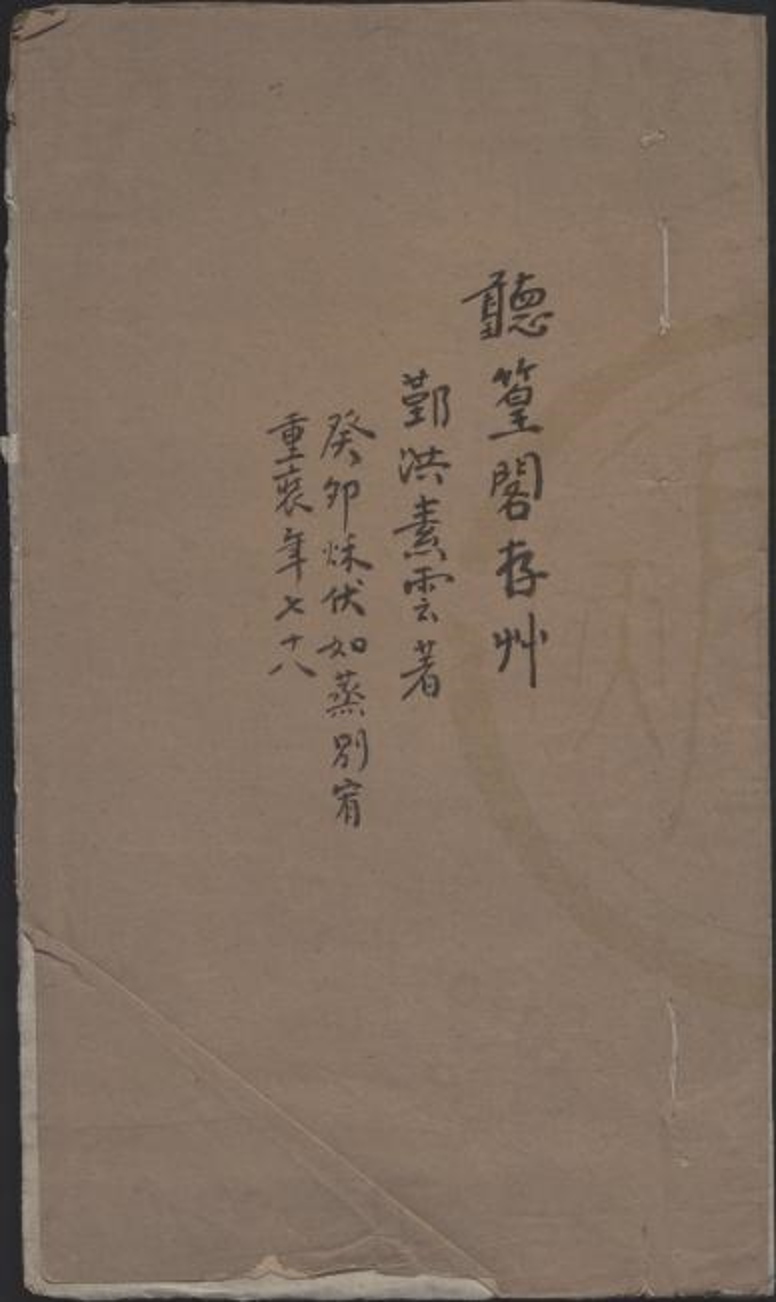 聽篁閣存艸
鄞洪素雲著
癸卯烁伏如蒸別宥
重裝年七十八